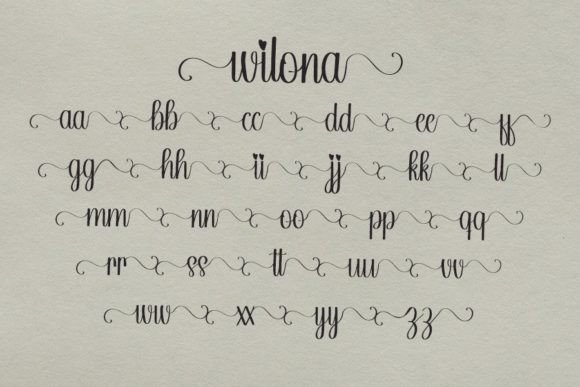 wilona
aa bb cc dd ee ff
gg hh ii jj kk ll
mm nn oo pp qq
rr ss tt uu vv
ww xx yy zz